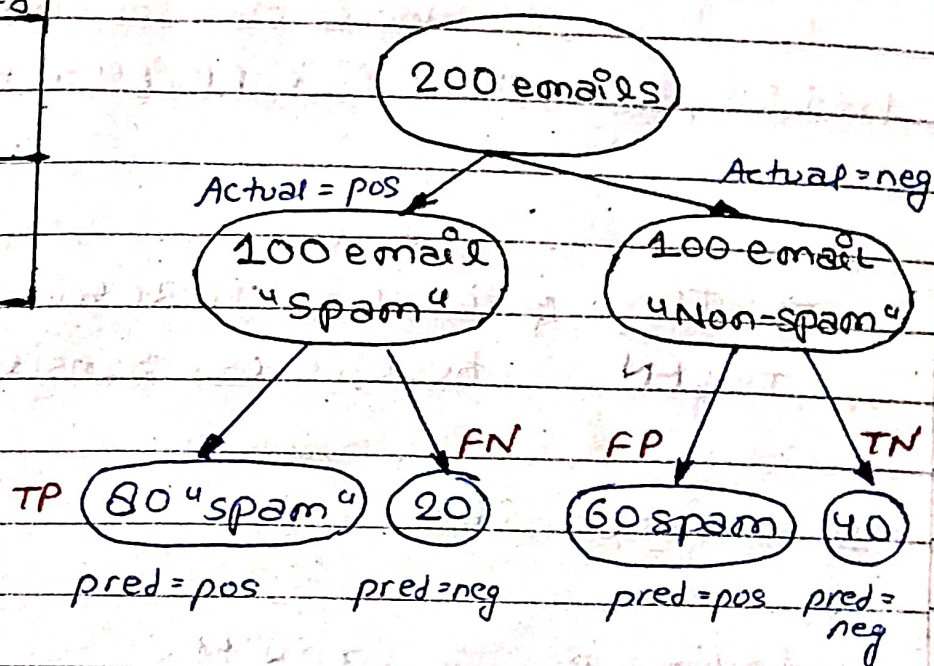 200 emails
Actual = pos
Actual = neg
100 email
"spam"
100 email
"Non-spam"
FN
FP
TN
TP
80 "spam"
20
60 spam
40
pred = pos
pred = neg
pred = pos
pred =
neg